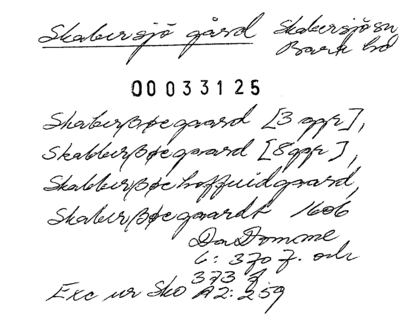 Skabersjö gård Skabersjö sn
Bara hd
00033125
Skaberßøegaard [3 ggr],
Skabberßøegaard [8 ggr],
Skabberßøehoffuidgaard,
Skaberßøegaardt 1606
DaDomme
6: 370 f. och
373 f.
Exc ur Sko A2: 259